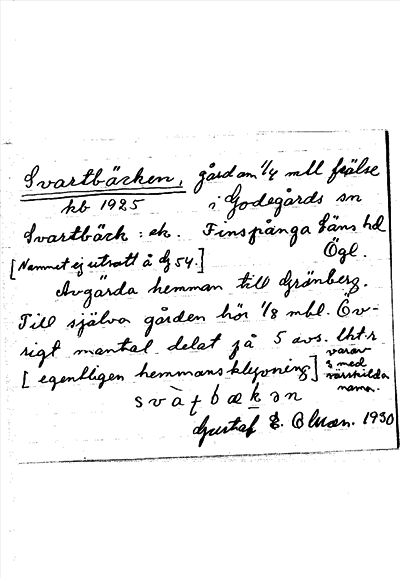 Svartbäcken, gård om 1/4 mtl frälse
kb 1925 i Godegårds sn
Svartbäck : ek. Finspånga läns hd
[Namnet ej utsatt å Gj 54.] Ögl.
Avgärda hemman till Grönberg.
Till själva gården hör 1/8 mtl. Öv-
rigt mantal delat på 5 avs. lht:r
varav
[egentligen hemmansklyvning] 3 med
särskilda
namn.
svàtbækən
Gustaf E. Olson. 1930